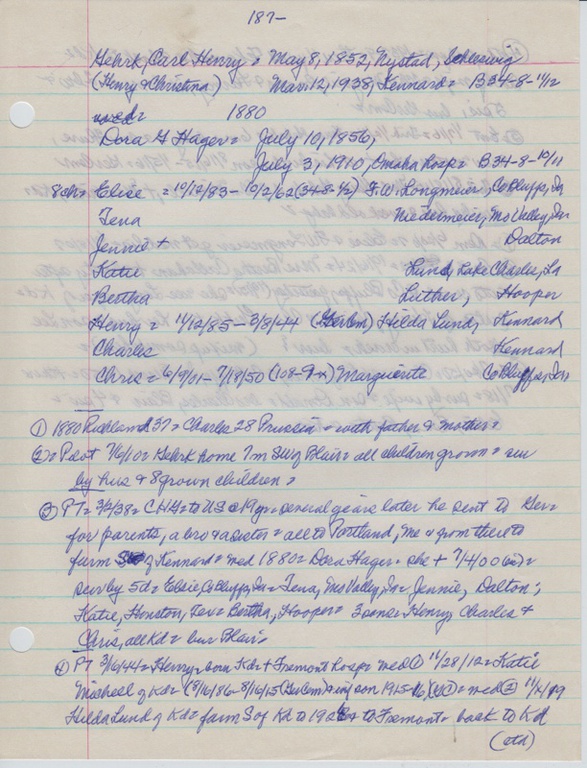 187-
Gehrk, Carl Henry = May 8, 1852, Nystad, Schleswig
(Henry & Christina) Mar. 12, 1938, Kennard = B34-8-11/12
med = 1880
Dora G Hager = July 10, 1856,
July 3, 1910, Omaha hosp = B34-8-10/11
8 ch = Elise = 10/12/83 - 10/2/62 (34-8-1/2) F.W. Longmeier, Co Bluffs, Ia
Tena Niedelmeier, Mo Valley, Ia
Jennie + Dalton
Katie Lund, Lake Charles, La
Bertha Luther, Hooper
Henry = 11/12/85 - 3/8/44 (Ger Cem) Hilda Lund, Kennard
Charles Kennard
Chris = 6/9/01 - 7/18/50 (108-9) Marguerite Co Bluffs, Ia
① 1880 Richland 37 = Charles 28 Prussia = with father & mother =
② = P oot 7/6/10 = Gehrk home 7m SW of Blair = all children grown = sur
by hus & 8 grown children =
③ PT = 3/4/38 = CHG = to US @ 19 yr = several years later he sent to Ger =
for parents, a bro & a sister = all to Portland, Me & from there to
farm S of Kennard = med 1880 = Dora Hager = she + 7/4/00 =
sur by 5d = Elsie, Co Bluffs, Ia = Tena, Mo Valley, Ia = Jennie, Dalton;
Katie, Houston, Tex = Bertha, Hooper = 3 sons = Henry, Charles &
Chris, all Kd = bur Blair =
④ PT 3/16/44 = Henry = born Kd = + Fremont hosp = med ① 11/28/12 = Katie
Misheel of Kd = (8/16/86 - 8/16/15 (Ger Cem) = inf son 1915- = med ② 11/4/19
Hilda Lund of Kd = farm S of Kd to 19 & to Fremont = back to Kd
(ctd)